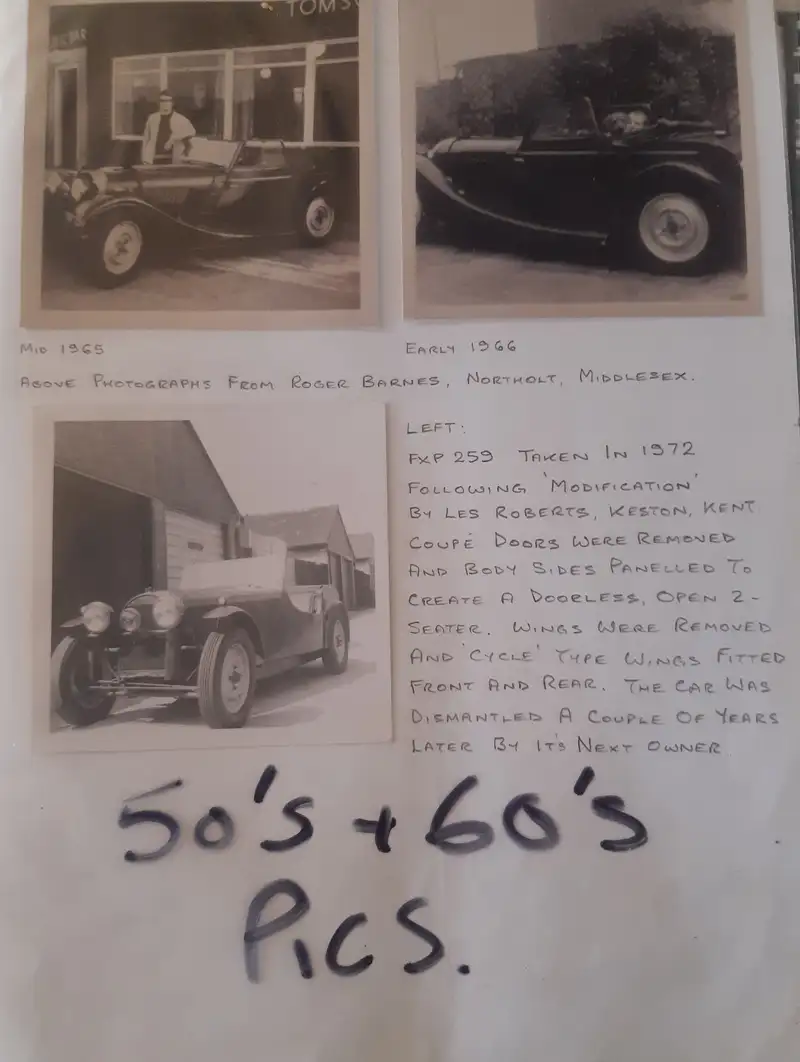 TOMS
MID 1965
EARLY 1966
ABOVE PHOTOGRAPHS FROM ROGER BARNES, NORTHOLT, MIDDLESEX.
LEFT:
FXP 259 TAKEN IN 1972
FOLLOWING 'MODIFICATION'
BY LES ROBERTS, KESTON, KENT
COUPÉ DOORS WERE REMOVED
AND BODY SIDES PANELLED TO
CREATE A DOORLESS, OPEN 2-
SEATER. WINGS WERE REMOVED
AND 'CYCLE' TYPE WINGS FITTED
FRONT AND REAR. THE CAR WAS
DISMANTLED A COUPLE OF YEARS
LATER BY IT'S NEXT OWNER
50's + 60's
PICS.